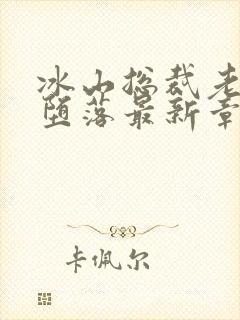 冰山总裁老
堕落最新章
卡佩尔